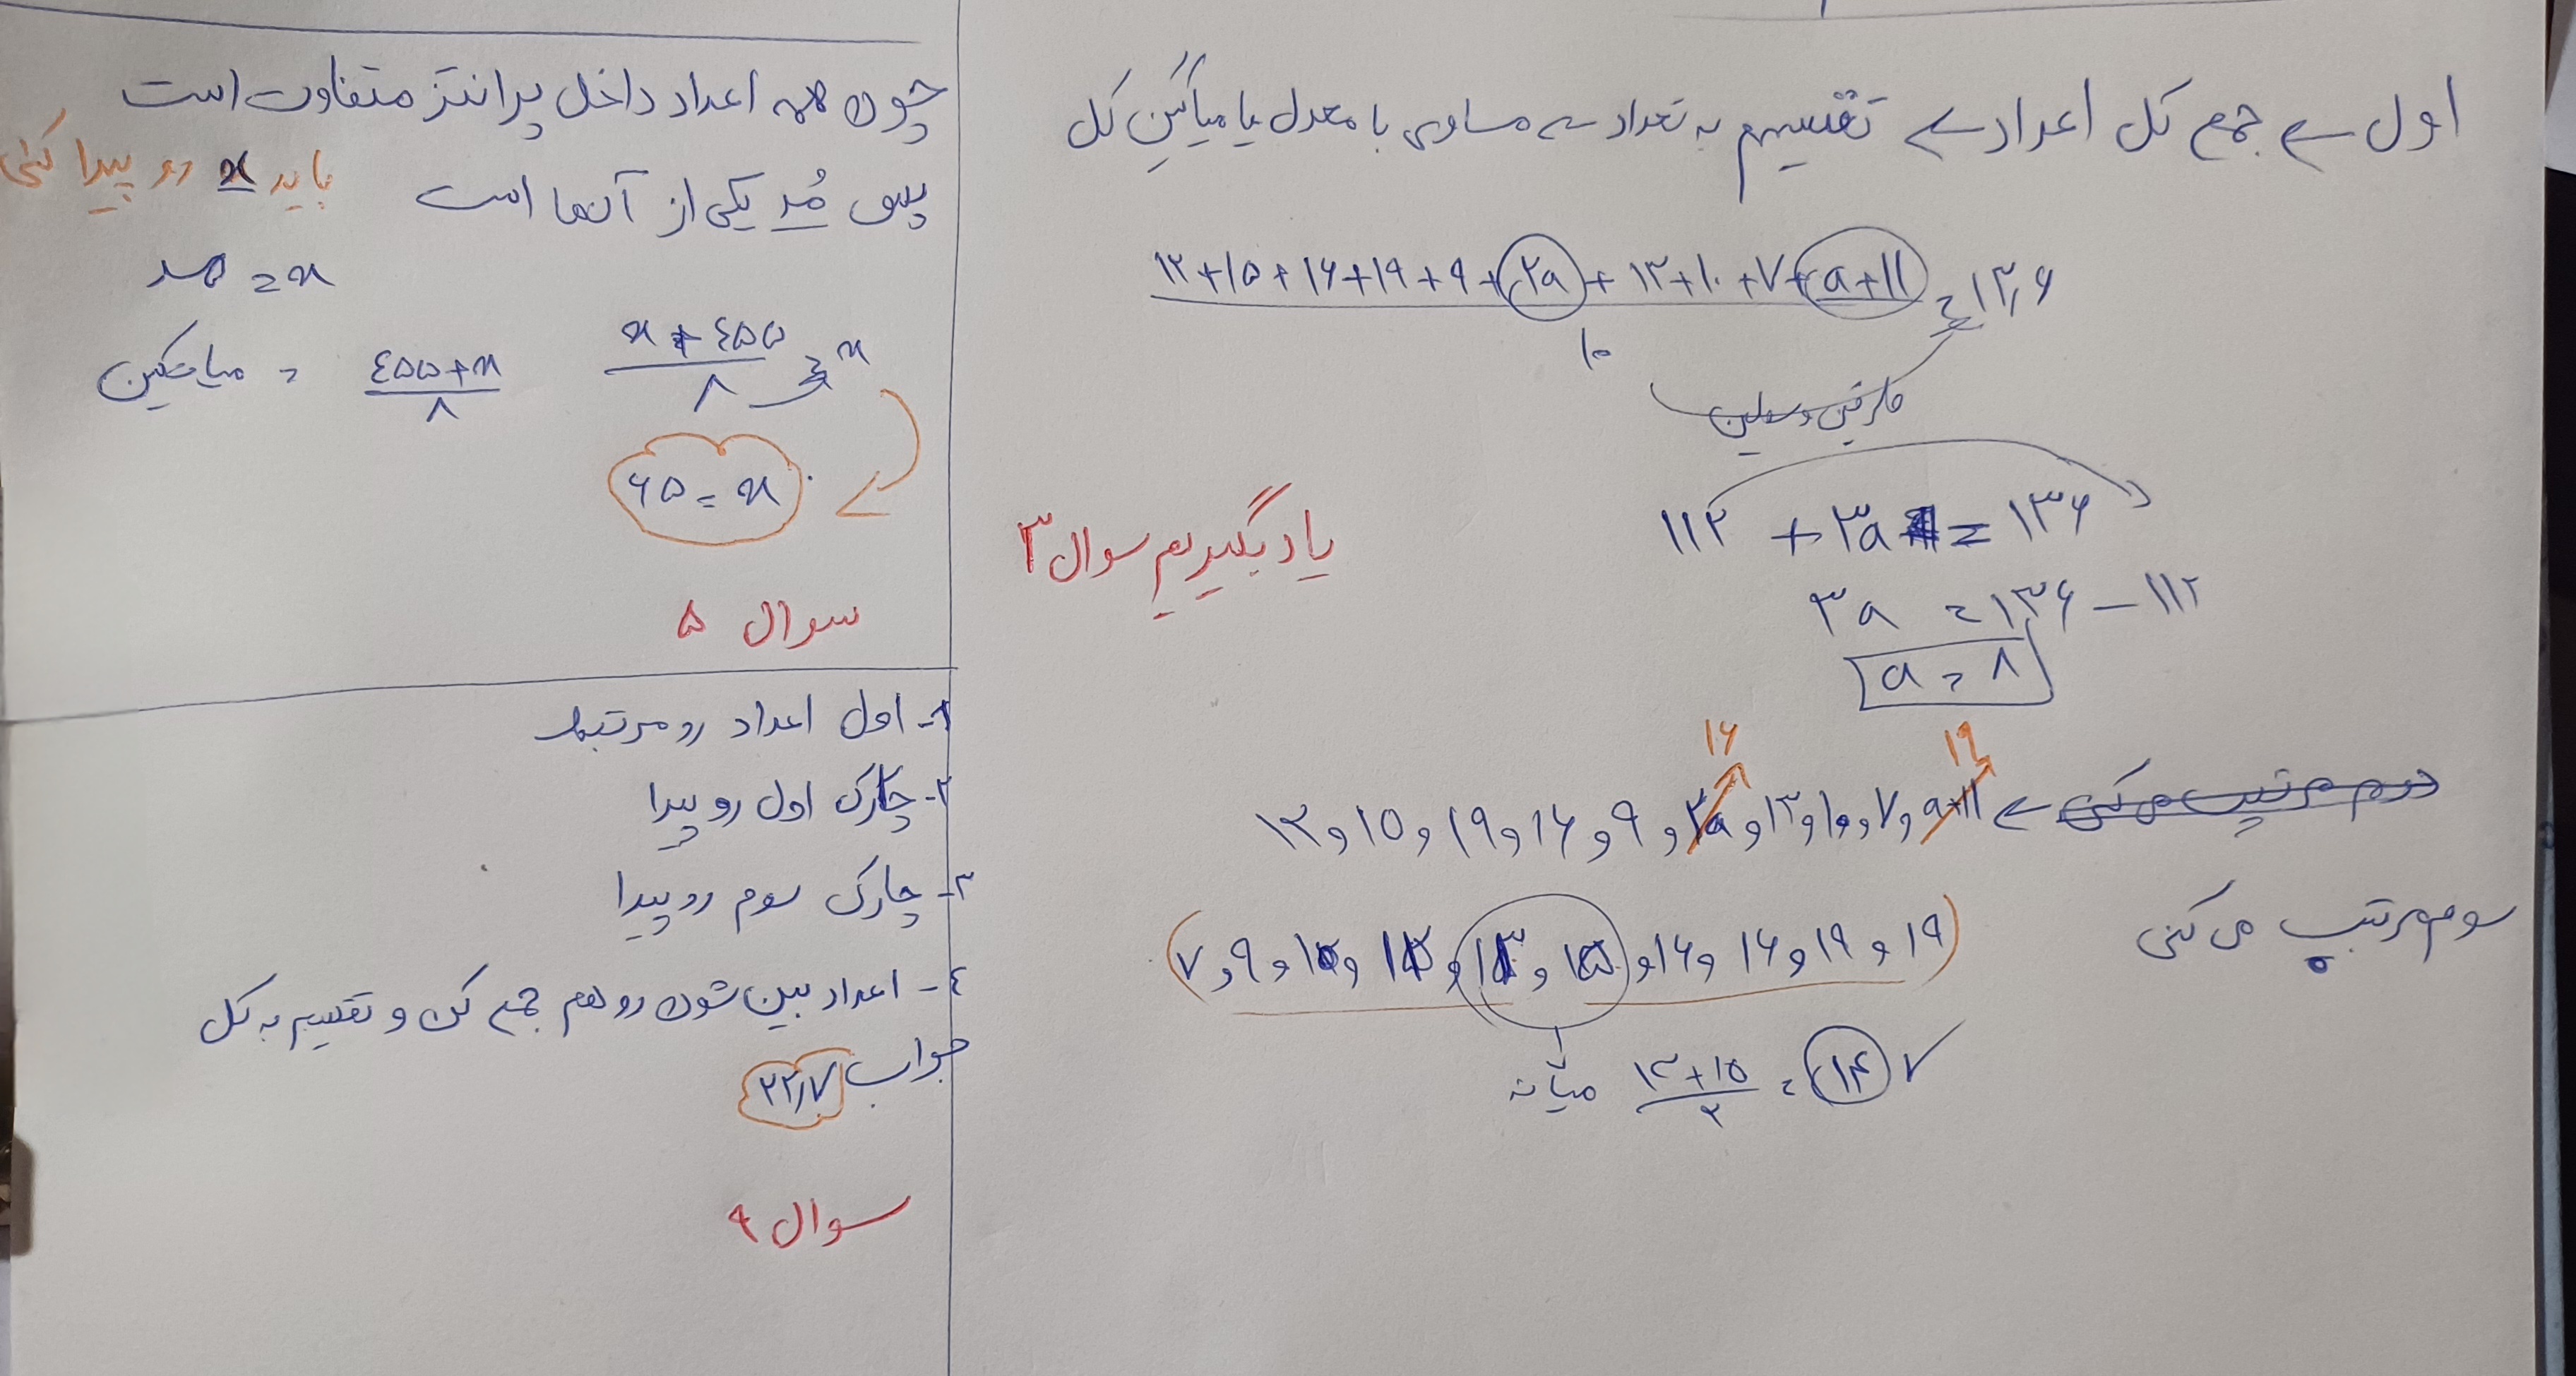 اول ← جمع کل اعداد ← تقسیم به تعداد ← مساوی با معدل یا میانگین کل
۱۲+۱۵+۱۶+۱۹+۹+۲a+۱۳+۱۰+۷+a+۱۱ = ۱۳٫۶
۱۰
طرفین وسطین
۱۱۲ + ۳a = ۱۳۶
۳a = ۱۳۶ - ۱۱۲
a = ۸
یاد بگیریم سوال ۳
۱۶ ۱۹
دوم مرتب می کنی ← ۱۲و۱۵و۱۹و۱۶و۹و۲aو۱۳و۱۰و۷وa+۱۱
سوم مرتب می کنی
(۷و۹و۱۰و۱۲و۱۳و۱۵و۱۶و۱۶و۱۹و۱۹)
میانه ۱۳+۱۵ = ۱۴
۲
چون همه اعداد داخل پرانتز متفاوت است
پس مُد یکی از آنها است باید x رو پیدا کنی
مد = x
میانگین = ۴۵۵+x / ۸
x+۴۵۵ / ۸ = x
۶۵ = x
سوال ۵
۱- اول اعداد رو مرتب
۲- چارک اول رو پیدا
۳- چارک سوم رو پیدا
۴- اعداد بین شون رو هم جمع کن و تقسیم به کل
جواب ۲۲٫۷
سوال ۹